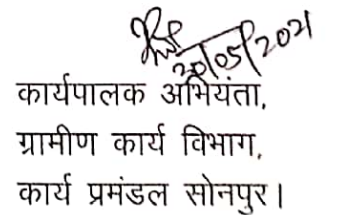 20/05/2021
कार्यपालक अभियंता,
ग्रामीण कार्य विभाग,
कार्य प्रमंडल सोनपुर।